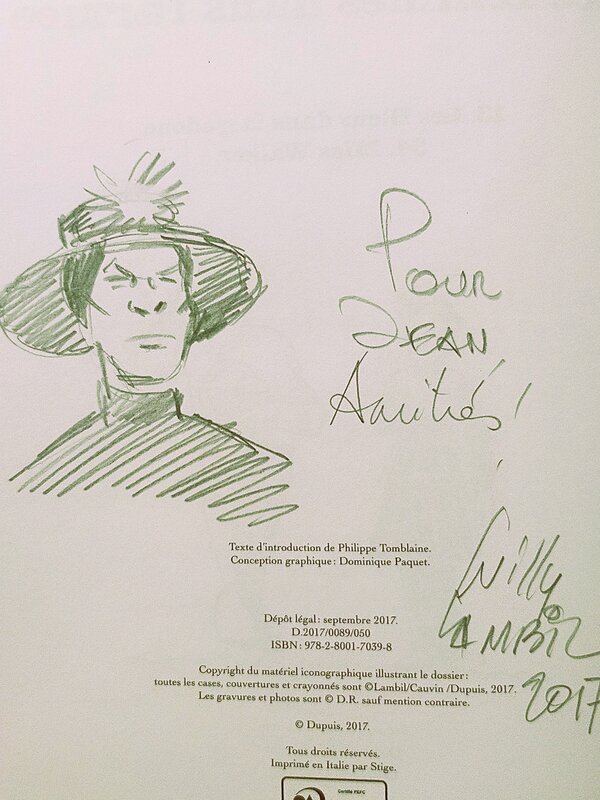 Pour
JEAN
Amitiés!
Willy
LAMBIL
2017
Texte d'introduction de Philippe Tomblaine.
Conception graphique : Dominique Paquet.
Dépôt légal : septembre 2017.
D.2017/0089/050
ISBN : 978-2-8001-7039-8
Copyright du matériel iconographique illustrant le dossier :
toutes les cases, couvertures et crayonnés sont ©Lambil/Cauvin /Dupuis, 2017.
Les gravures et photos sont © D.R. sauf mention contraire.
© Dupuis, 2017.
Tous droits réservés.
Imprimé en Italie par Stige.
Certifié PEFC